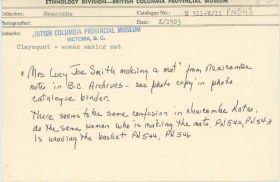 ETHNOLOGY DIVISION—BRITISH COLUMBIA PROVINCIAL MUSEUM
Collection: Newcombe Catalogue No.: PN543
Photographer: Date: X/1903
Remarks: BRITISH COLUMBIA PROVINCIAL MUSEUM
VICTORIA, B. C.
Clayoquot - woman making mat
"Mrs Lucy Joe Smith making a mat" from Newcombe
note in B.C. Archives - see photo copy in photo
catalogue binder.
There seems to be some confusion in Newcombe Notes,
as the same woman who is making the mats, PN542, PN543
is weaving the basket PN544, PN546